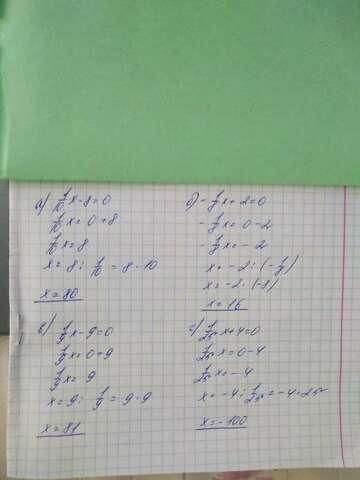 а) 1/10 x - 8 = 0
1/10 x = 0 + 8
1/10 x = 8
x = 8 : 1/10 = 8 · 10
x = 80
б) - 1/8 x + 2 = 0
- 1/8 x = 0 - 2
- 1/8 x = - 2
x = - 2 : (- 1/8)
x = - 2 · (- 8)
x = 16
в) 1/9 x - 9 = 0
1/9 x = 0 + 9
1/9 x = 9
x = 9 : 1/9 = 9 · 9
x = 81
г) 1/25 x + 4 = 0
1/25 x = 0 - 4
1/25 x = - 4
x = - 4 : 1/25 = - 4 · 25
x = - 100